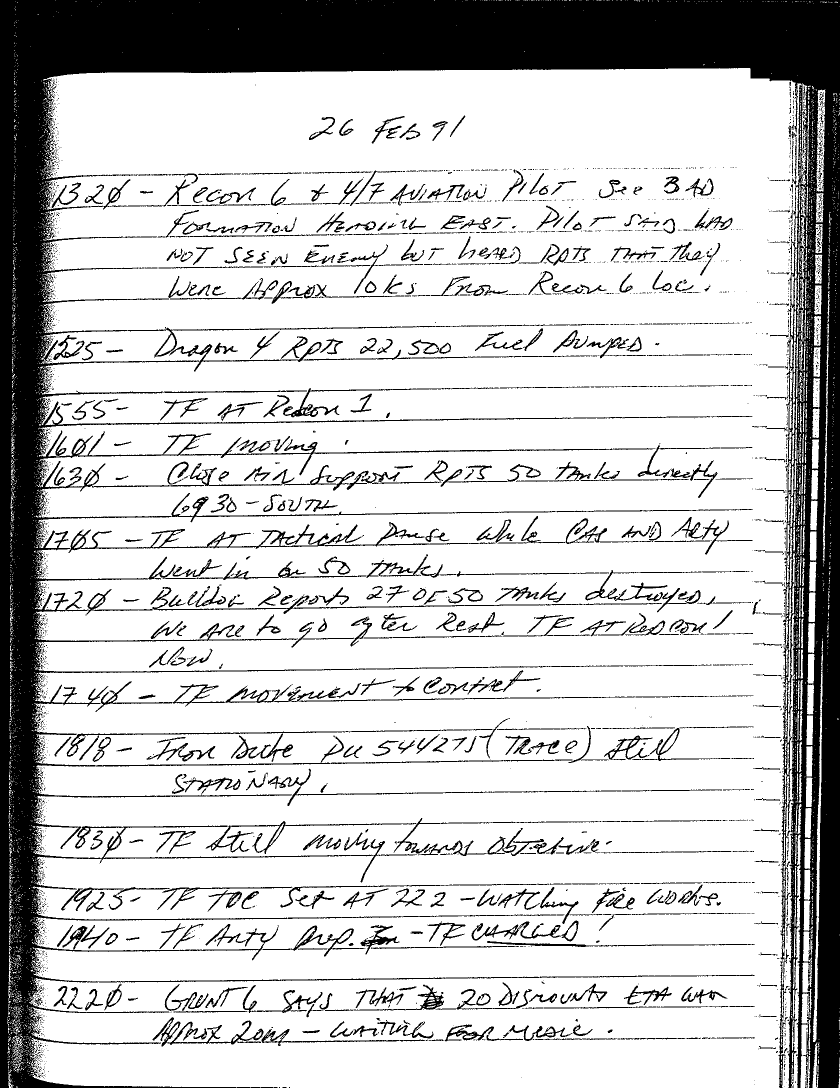 26 FEB 91
132Ø - Recon 6 & 4/7 AVIATION PILOT See 3 AD
FORMATION HEADING EAST. PILOT SAID HAD
NOT SEEN ENEMY but HEARD RPTS THAT they
Were APProx 10 ks From Recon 6 loc.
1525 - Dragon 4 RPTS 22,500 Fuel PUMPED.
1555 - TF AT Redcon 1.
16Ø1 - TF moving.
163Ø - Close AIR Support RPTS 50 tanks directly
6930 - SOUTH.
17Ø5 - TF AT TActical Pause while CAS AND ARTY
Went in on 50 tanks.
172Ø - Bulldog Reports 27 OF 50 tanks destroyed,
We are to go after Rest. TF AT REDCON 1
Now.
174Ø - TF MOVEMENT to Contact.
1818 - Iron Duke PU 544275 (TRACE) still
STATIONARY.
183Ø - TF Still moving towards Objective.
1925 - TF TOC Set AT 222 - WATChing Fire works.
1940 - TF Arty prep. - TF CHARGED!
222Ø - GRUNT 6 SAYS THAT 20 DISMOUNTS
APProx 2om - WAITING FOR MUSIC.